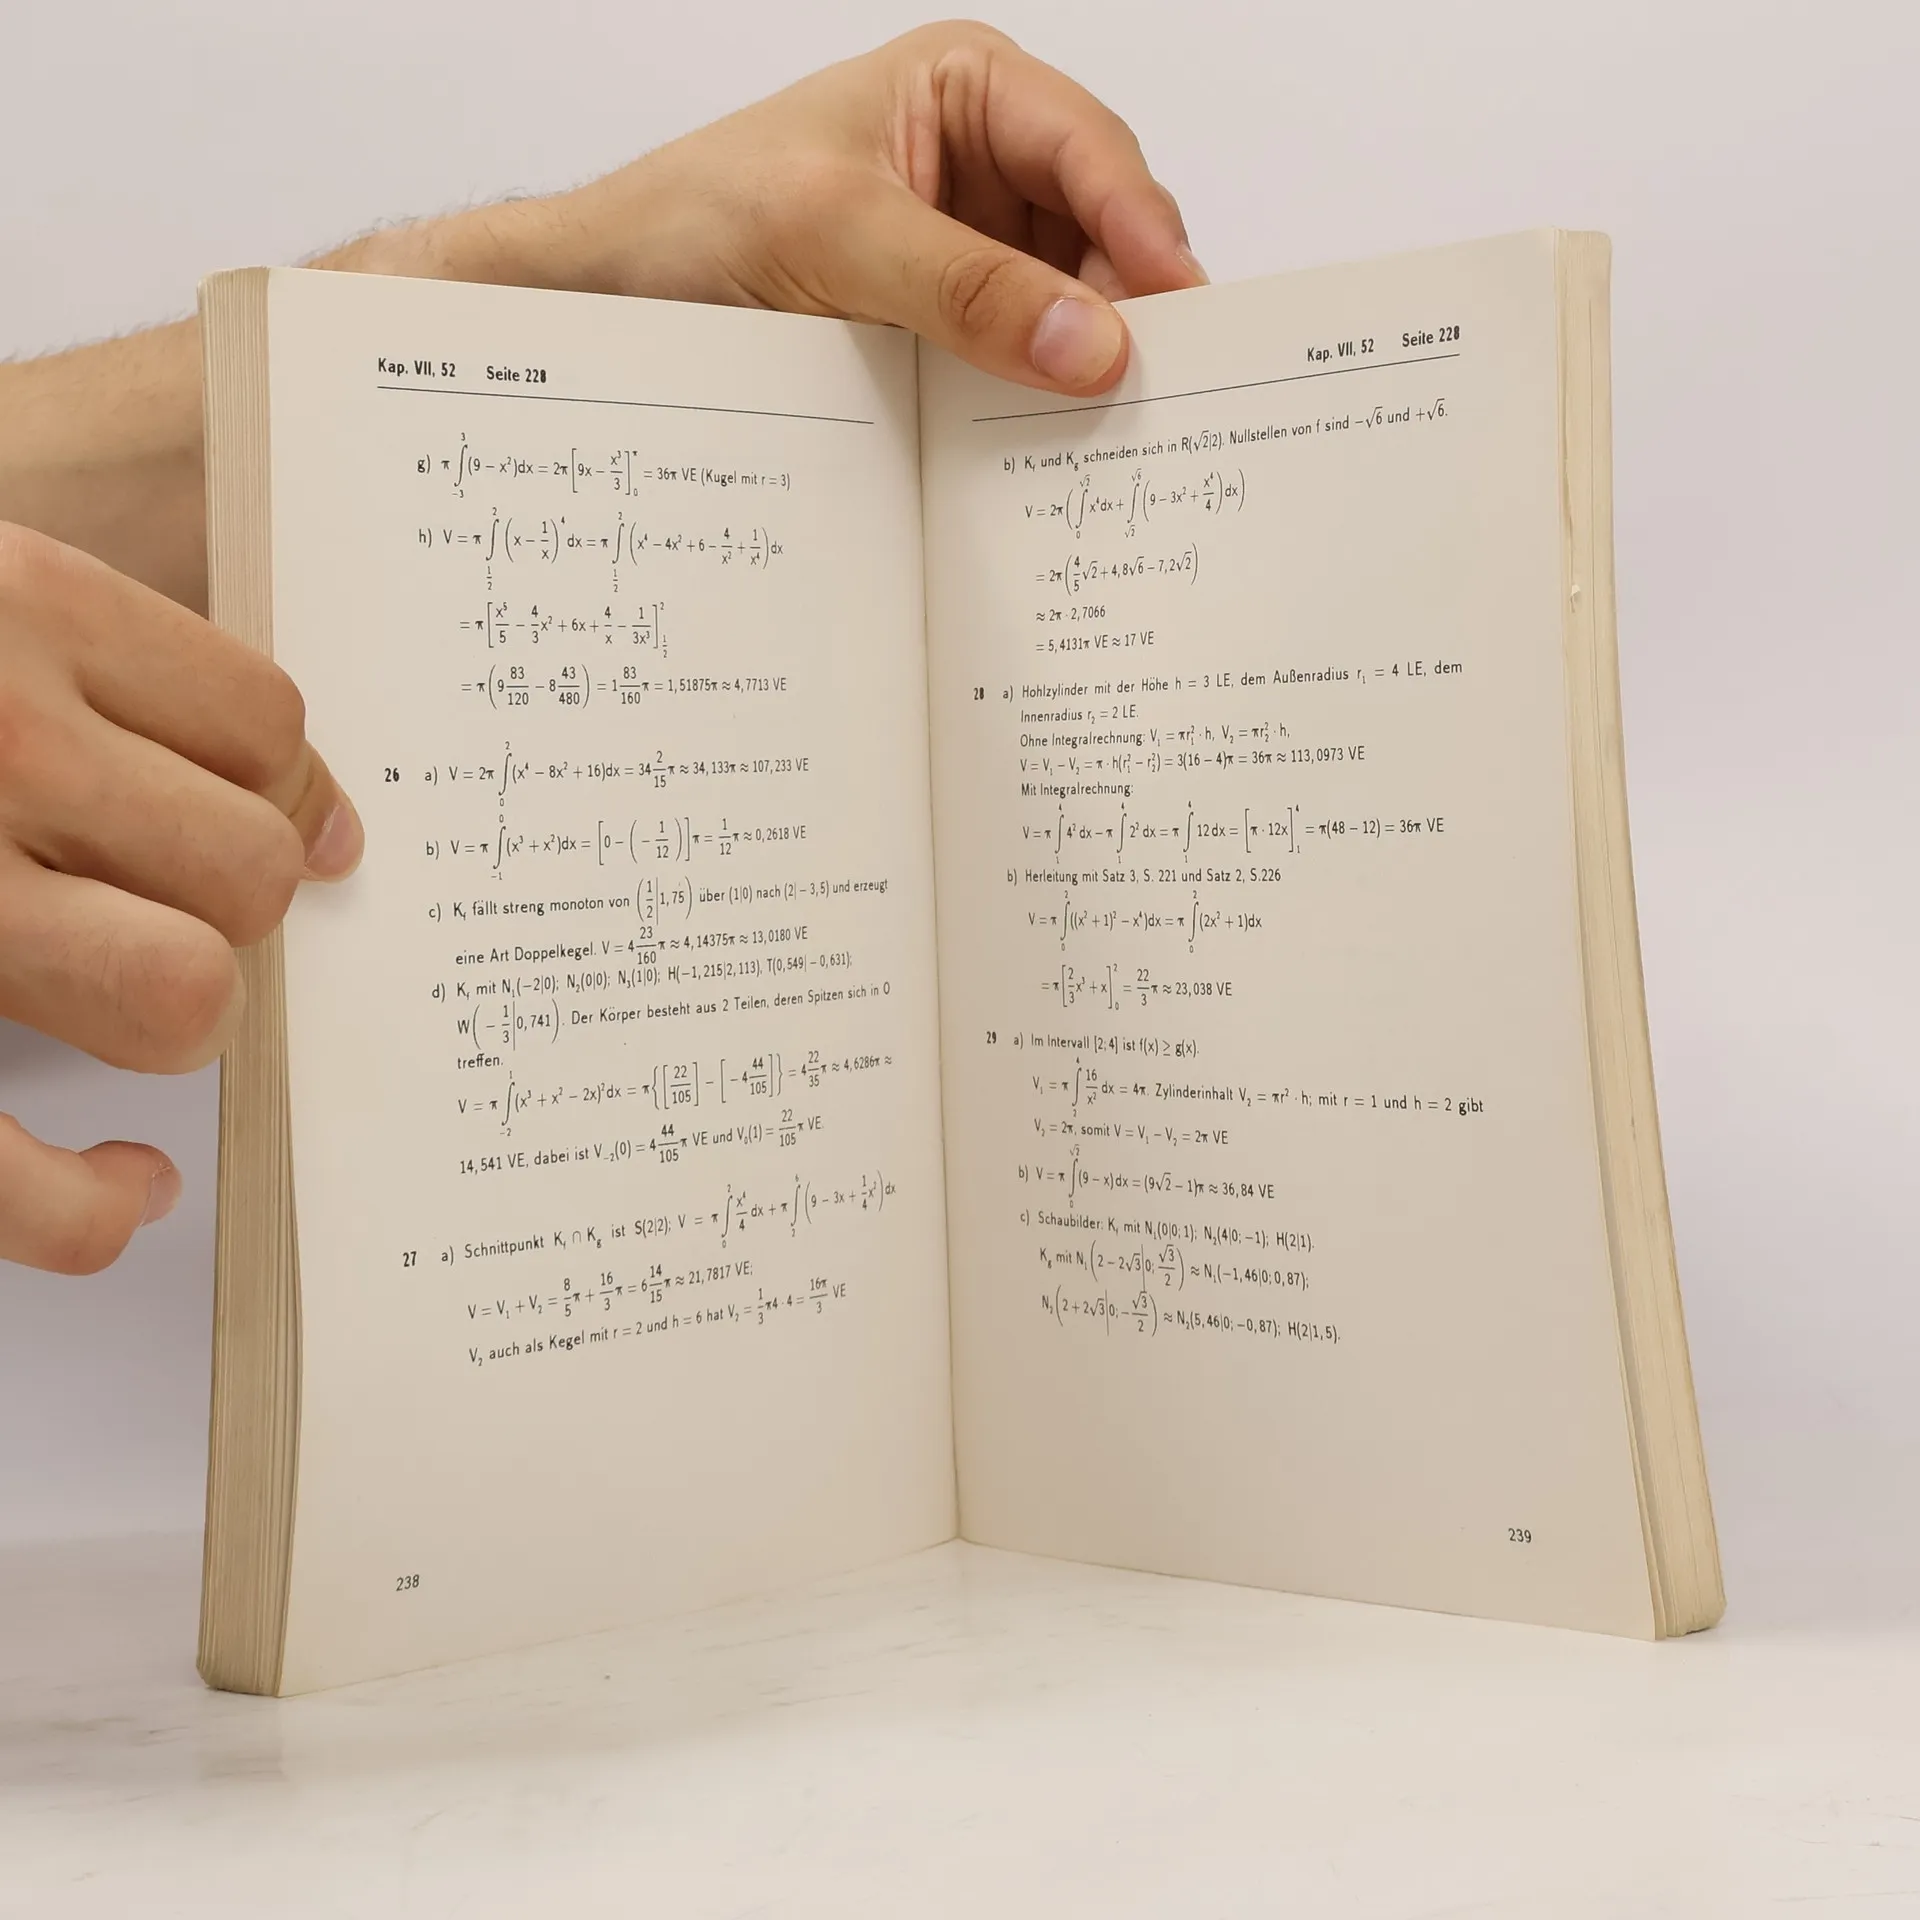 Kap. VII, 52 Seite 228
g) π ∫₋₃³ (9 − x²)dx = 2π [9x − x³/3]₀^π = 36π VE (Kugel mit r = 3)
h) V = π ∫_{1/2}^{2} (x − 1/x)⁴ dx = π ∫_{1/2}^{2} (x⁴ − 4x² + 6 − 4/x² + 1/x⁴) dx
= π [x⁵/5 − 4/3 x² + 6x + 4/x − 1/3x³]_{1/2}^{2}
= π (9 83/120 − 8 43/480) = 1 83/160 π = 1,51875π ≈ 4,7713 VE
26 a) V = 2π ∫₀² (x⁴ − 8x² + 16)dx = 34 2/15 π ≈ 34,133π ≈ 107,233 VE
b) V = π ∫₋₁⁰ (x³ + x²)dx = [0 − (− 1/12)] π = 1/12 π ≈ 0,2618 VE
c) K_f fällt streng monoton von (1/2|1,75) über (1|0) nach (2|−3,5) und erzeugt
eine Art Doppelkegel. V = 4 23/160 π ≈ 4,14375π ≈ 13,0180 VE
d) K_f mit N₁(−2|0); N₂(0|0); N₃(1|0); H(−1,215|2,113), T(0,549|−0,631);
W(− 1/3|0,741). Der Körper besteht aus 2 Teilen, deren Spitzen sich in O
treffen.
V = π ∫₋₂¹ (x³ + x² − 2x)²dx = π {[22/105] − [−4 44/105]} = 4 22/35 π ≈ 4,6286π ≈
14,541 VE, dabei ist V₋₂(0) = 4 44/105 π VE und V₀(1) = 22/105 π VE.
27 a) Schnittpunkt K_f ∩ K_g ist S(2|2); V = π ∫₀² x⁴/4 dx + π ∫₂⁶ (9 − 3x + 1/4 x²) dx
V = V₁ + V₂ = 8/5 π + 16/3 π = 6 14/15 π ≈ 21,7817 VE;
V₂ auch als Kegel mit r = 2 und h = 6 hat V₂ = 1/3 π4 · 4 = 16π/3 VE
238
Kap. VII, 52 Seite 228
b) K_f und K_g schneiden sich in R(√2|2). Nullstellen von f sind −√6 und +√6.
V = 2π (∫₀^{√2} x⁴dx + ∫_{√2}^{√6} (9 − 3x² + x⁴/4) dx)
= 2π (4/5 √2 + 4,8√6 − 7,2√2)
≈ 2π · 2,7066
= 5,4131π VE ≈ 17 VE
28 a) Hohlzylinder mit der Höhe h = 3 LE, dem Außenradius r₁ = 4 LE, dem
Innenradius r₂ = 2 LE.
Ohne Integralrechnung: V₁ = πr₁² · h, V₂ = πr₂² · h,
V = V₁ − V₂ = π · h(r₁² − r₂²) = 3(16 − 4)π = 36π ≈ 113,0973 VE
Mit Integralrechnung:
V = π ∫₁⁴ 4² dx − π ∫₁⁴ 2² dx = π ∫₁⁴ 12 dx = [π · 12x]₁⁴ = π(48 − 12) = 36π VE
b) Herleitung mit Satz 3, S. 221 und Satz 2, S.226
V = π ∫₀² ((x² + 1)² − x⁴)dx = π ∫₀² (2x² + 1)dx
= π [2/3 x³ + x]₀² = 22/3 π ≈ 23,038 VE
29 a) Im Intervall [2; 4] ist f(x) ≥ g(x).
V₁ = π ∫₂⁴ 16/x² dx = 4π. Zylinderinhalt V₂ = πr² · h; mit r = 1 und h = 2 gibt
V₂ = 2π, somit V = V₁ − V₂ = 2π VE
b) V = π ∫₀^{√2} (9 − x)dx = (9√2 − 1)π ≈ 36,84 VE
c) Schaubilder: K_f mit N₁(0|0; 1); N₂(4|0; −1); H(2|1).
K_g mit N₁(2 − 2√3|0; √3/2) ≈ N₁(−1,46|0; 0,87);
N₂(2 + 2√3|0; −√3/2) ≈ N₂(5,46|0; −0,87); H(2|1,5).
239